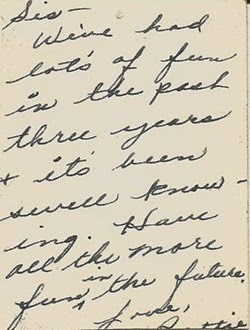 Sis—
We've had
lot's of fun
in the past
three years
+ it's been
swell know-
ing. Have
all the more
fun in the future.
Love,